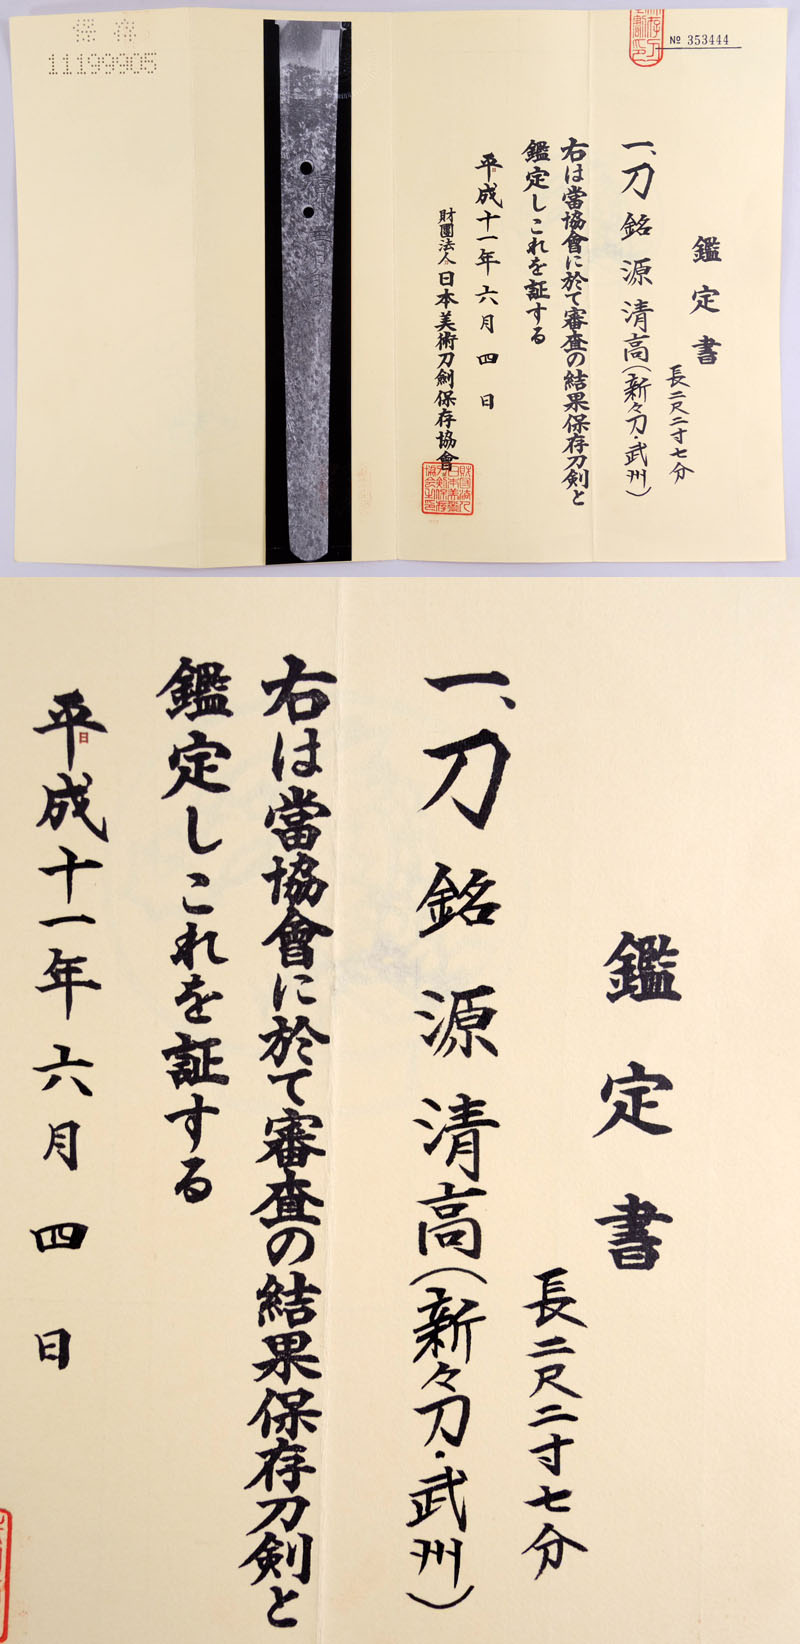 保存
11199905
№ 353444
鑑定書
長二尺二寸七分
一、刀 銘 源清高(新々刀・武州)
右は當協會に於て審査の結果保存刀剣と
鑑定しこれを証する
平成十一年六月四日
財團法人日本美術刀劍保存協會
鑑定書
長二尺二寸七分
一、刀 銘 源清高(新々刀・武州)
右は當協會に於て審査の結果保存刀剣と
鑑定しこれを証する
平成十一年六月四日